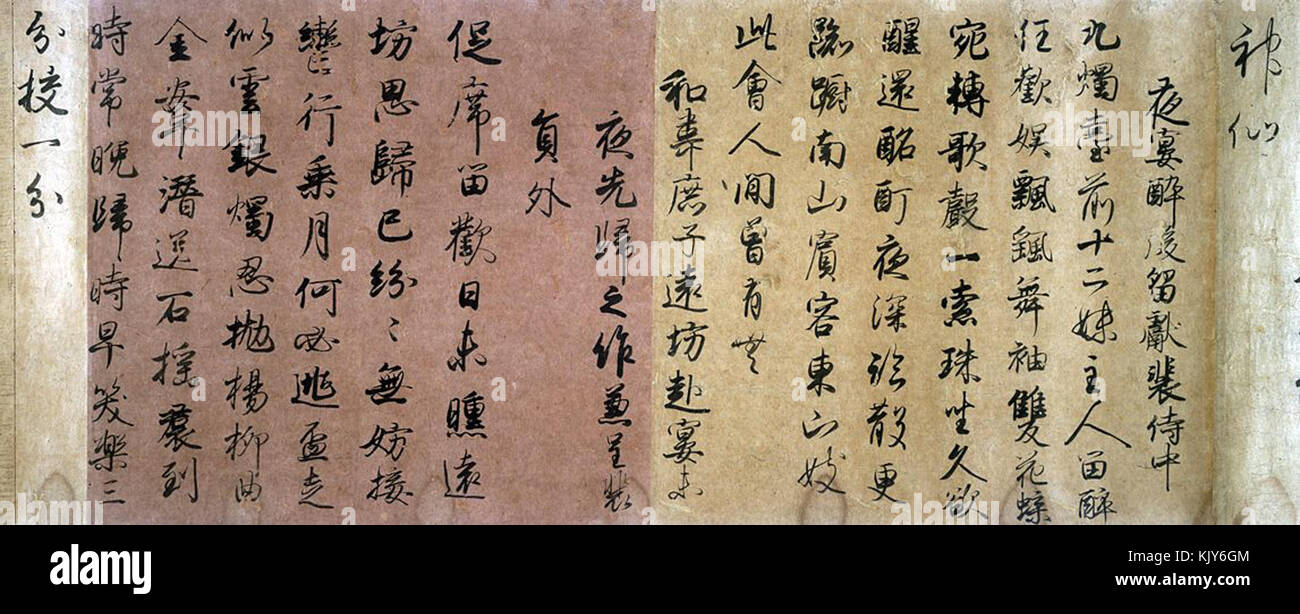 神仙
夜宴醉後留獻裴侍中
九燭臺前十二姝主人留醉
任歡娛飄颻舞袖雙花蝶
宛轉歌聲一索珠坐久欲
醒還酩酊夜深臨散更
踟躕南山賓客東山妓
此會人間曾有無
和李庶子遠坊赴宴未
夜先歸之作兼呈裴
員外
促席留歡日未曛遠
坊思歸已紛〻無妨按
轡行乘月何必逃盃走
似雲銀燭忍拋楊柳曲
金鞍潛送石榴裙到
時常晚歸時早笑樂三
分校一分
alamy
Image ID: KJY6GM
www.alamy.com